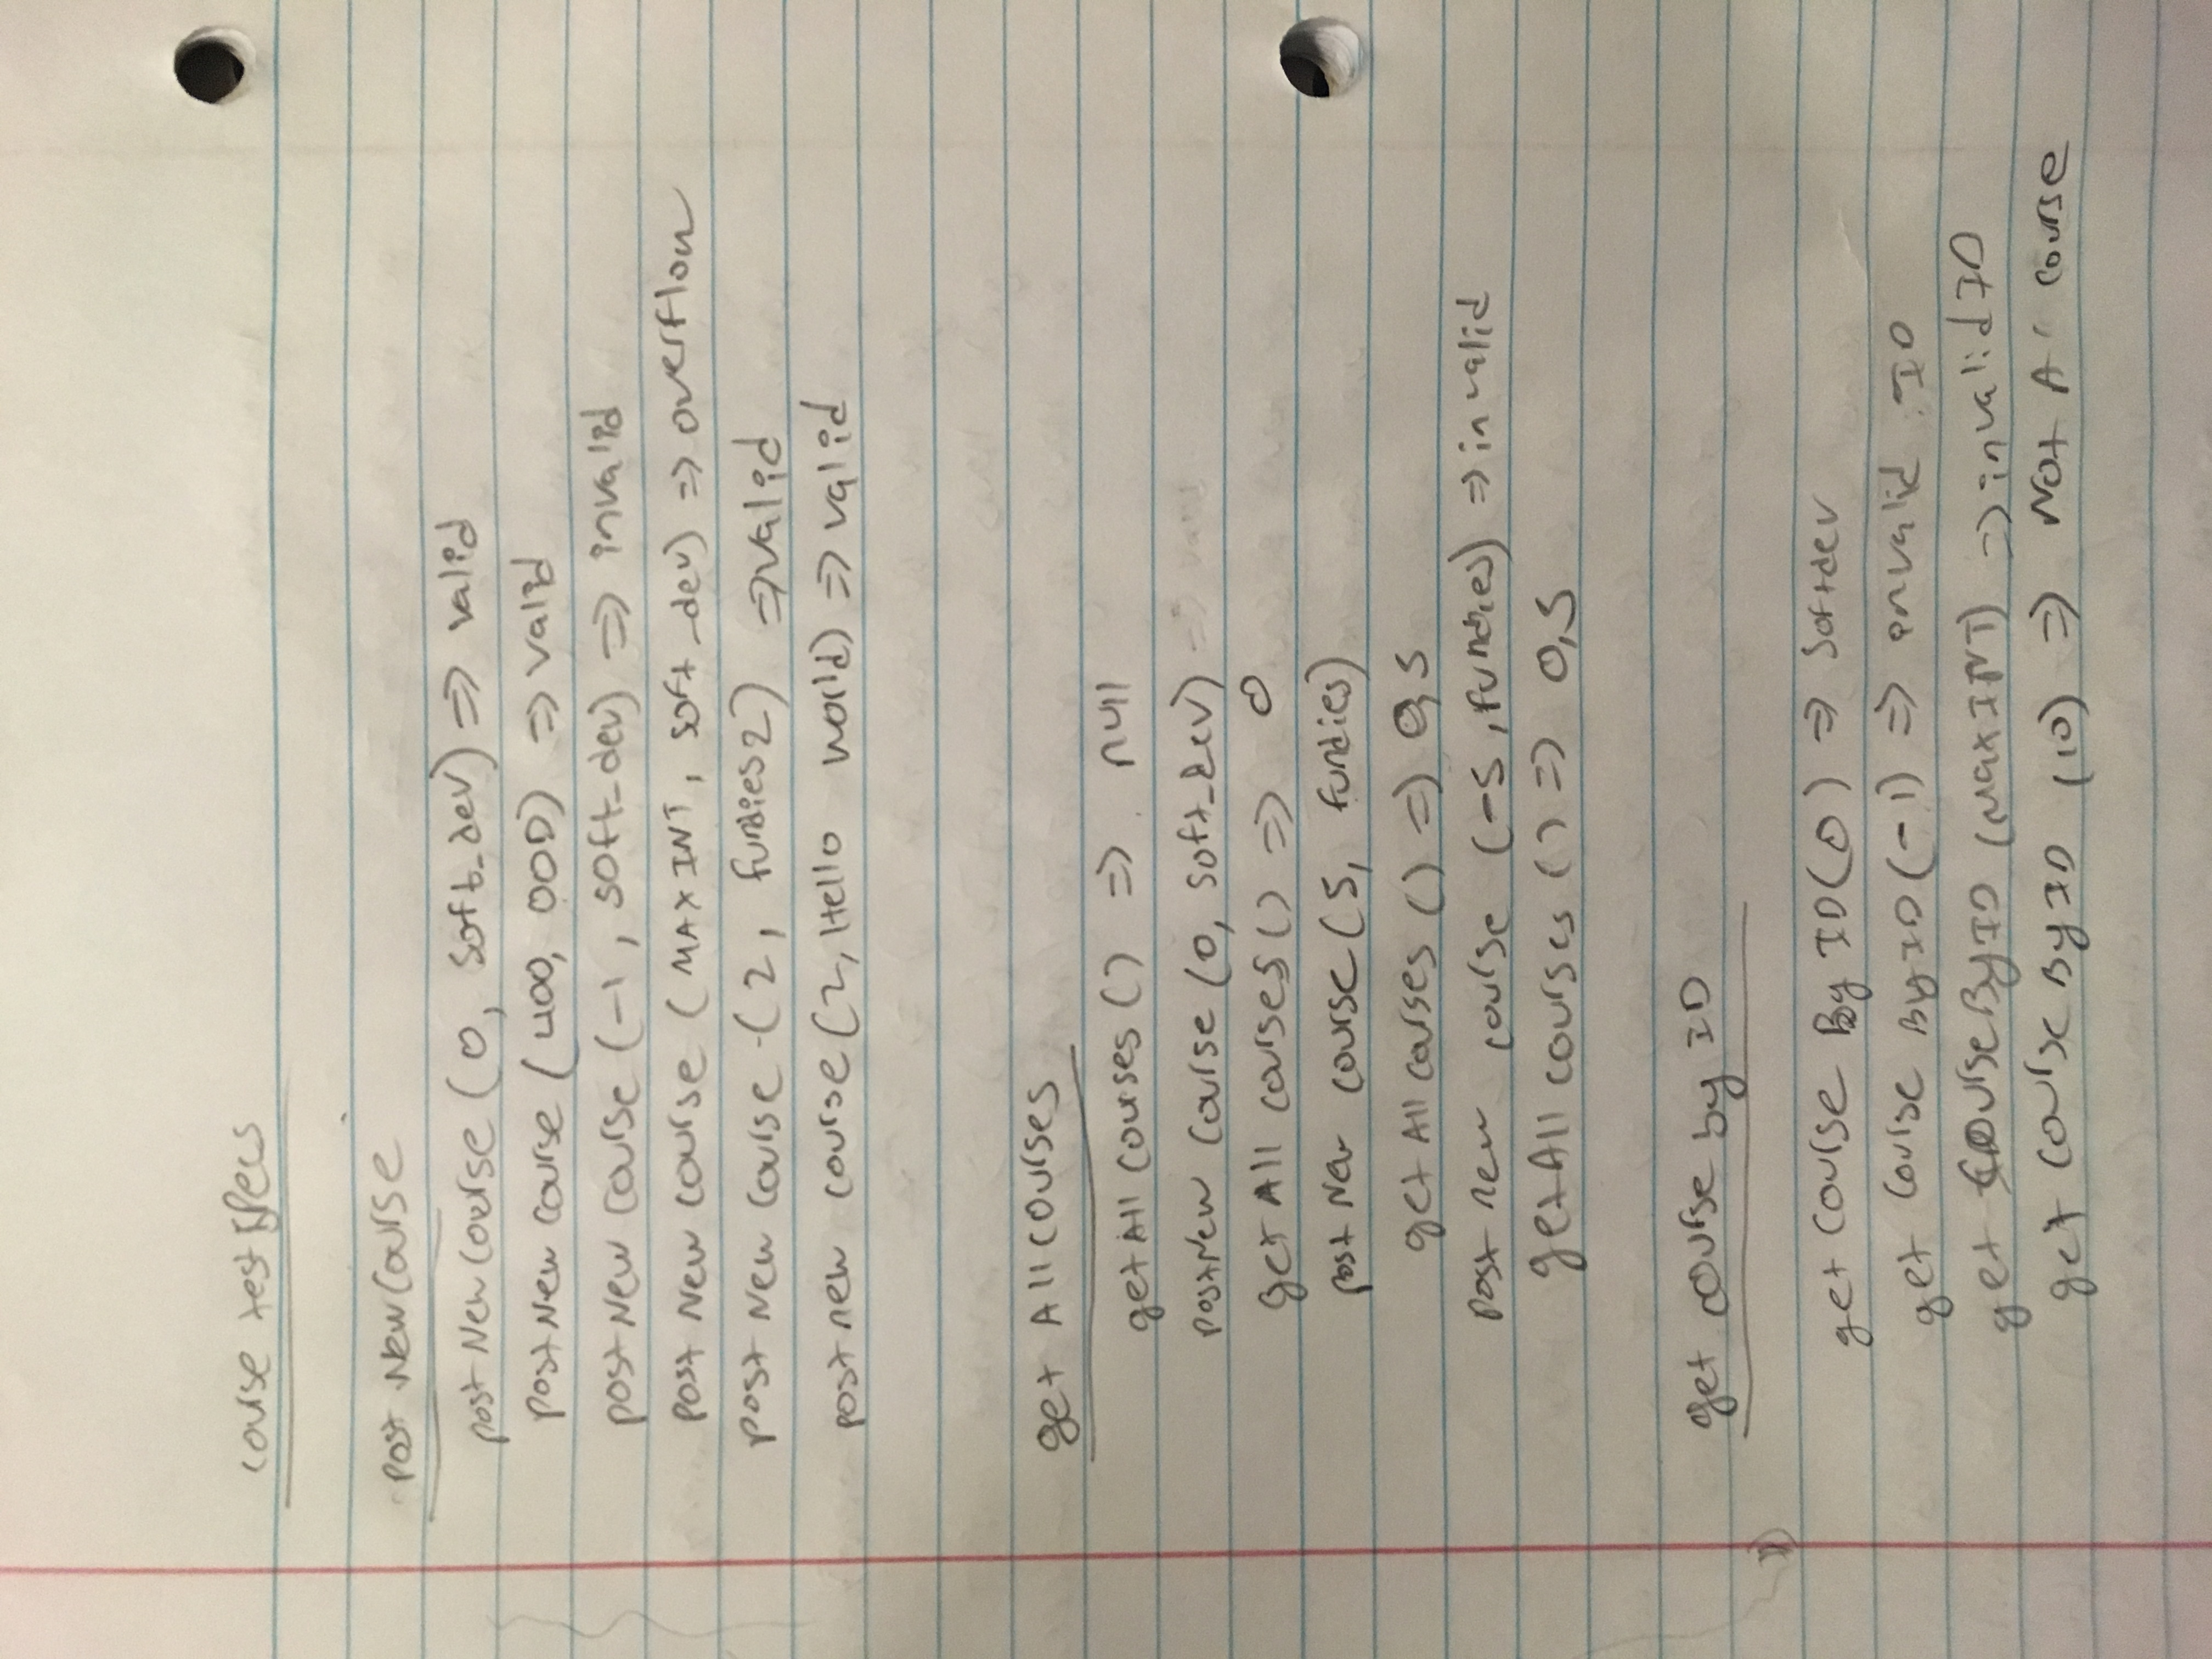 course test specs
post New Course
post New Course (0, soft_dev) => valid
post New course (400, OOD) => valid
post New course (-1, soft_dev) => invalid
post New course (MAX INT, soft_dev) => overflow
post New course (2, fundies2) => valid
post new course (2, Hello world) => valid
get All courses
get All courses () => null
post New course (0, soft_dev)
get All courses () => 0
post New course (5, fundies)
get All courses () => 0,5
post new course (-5, fundies) => invalid
get All courses () => 0,5
get course by ID
get course By ID (0) => Softdev
get course By ID (-1) => invalid ID
get Course By ID (Max INT) => invalid ID
get course By ID (10) => Not A course